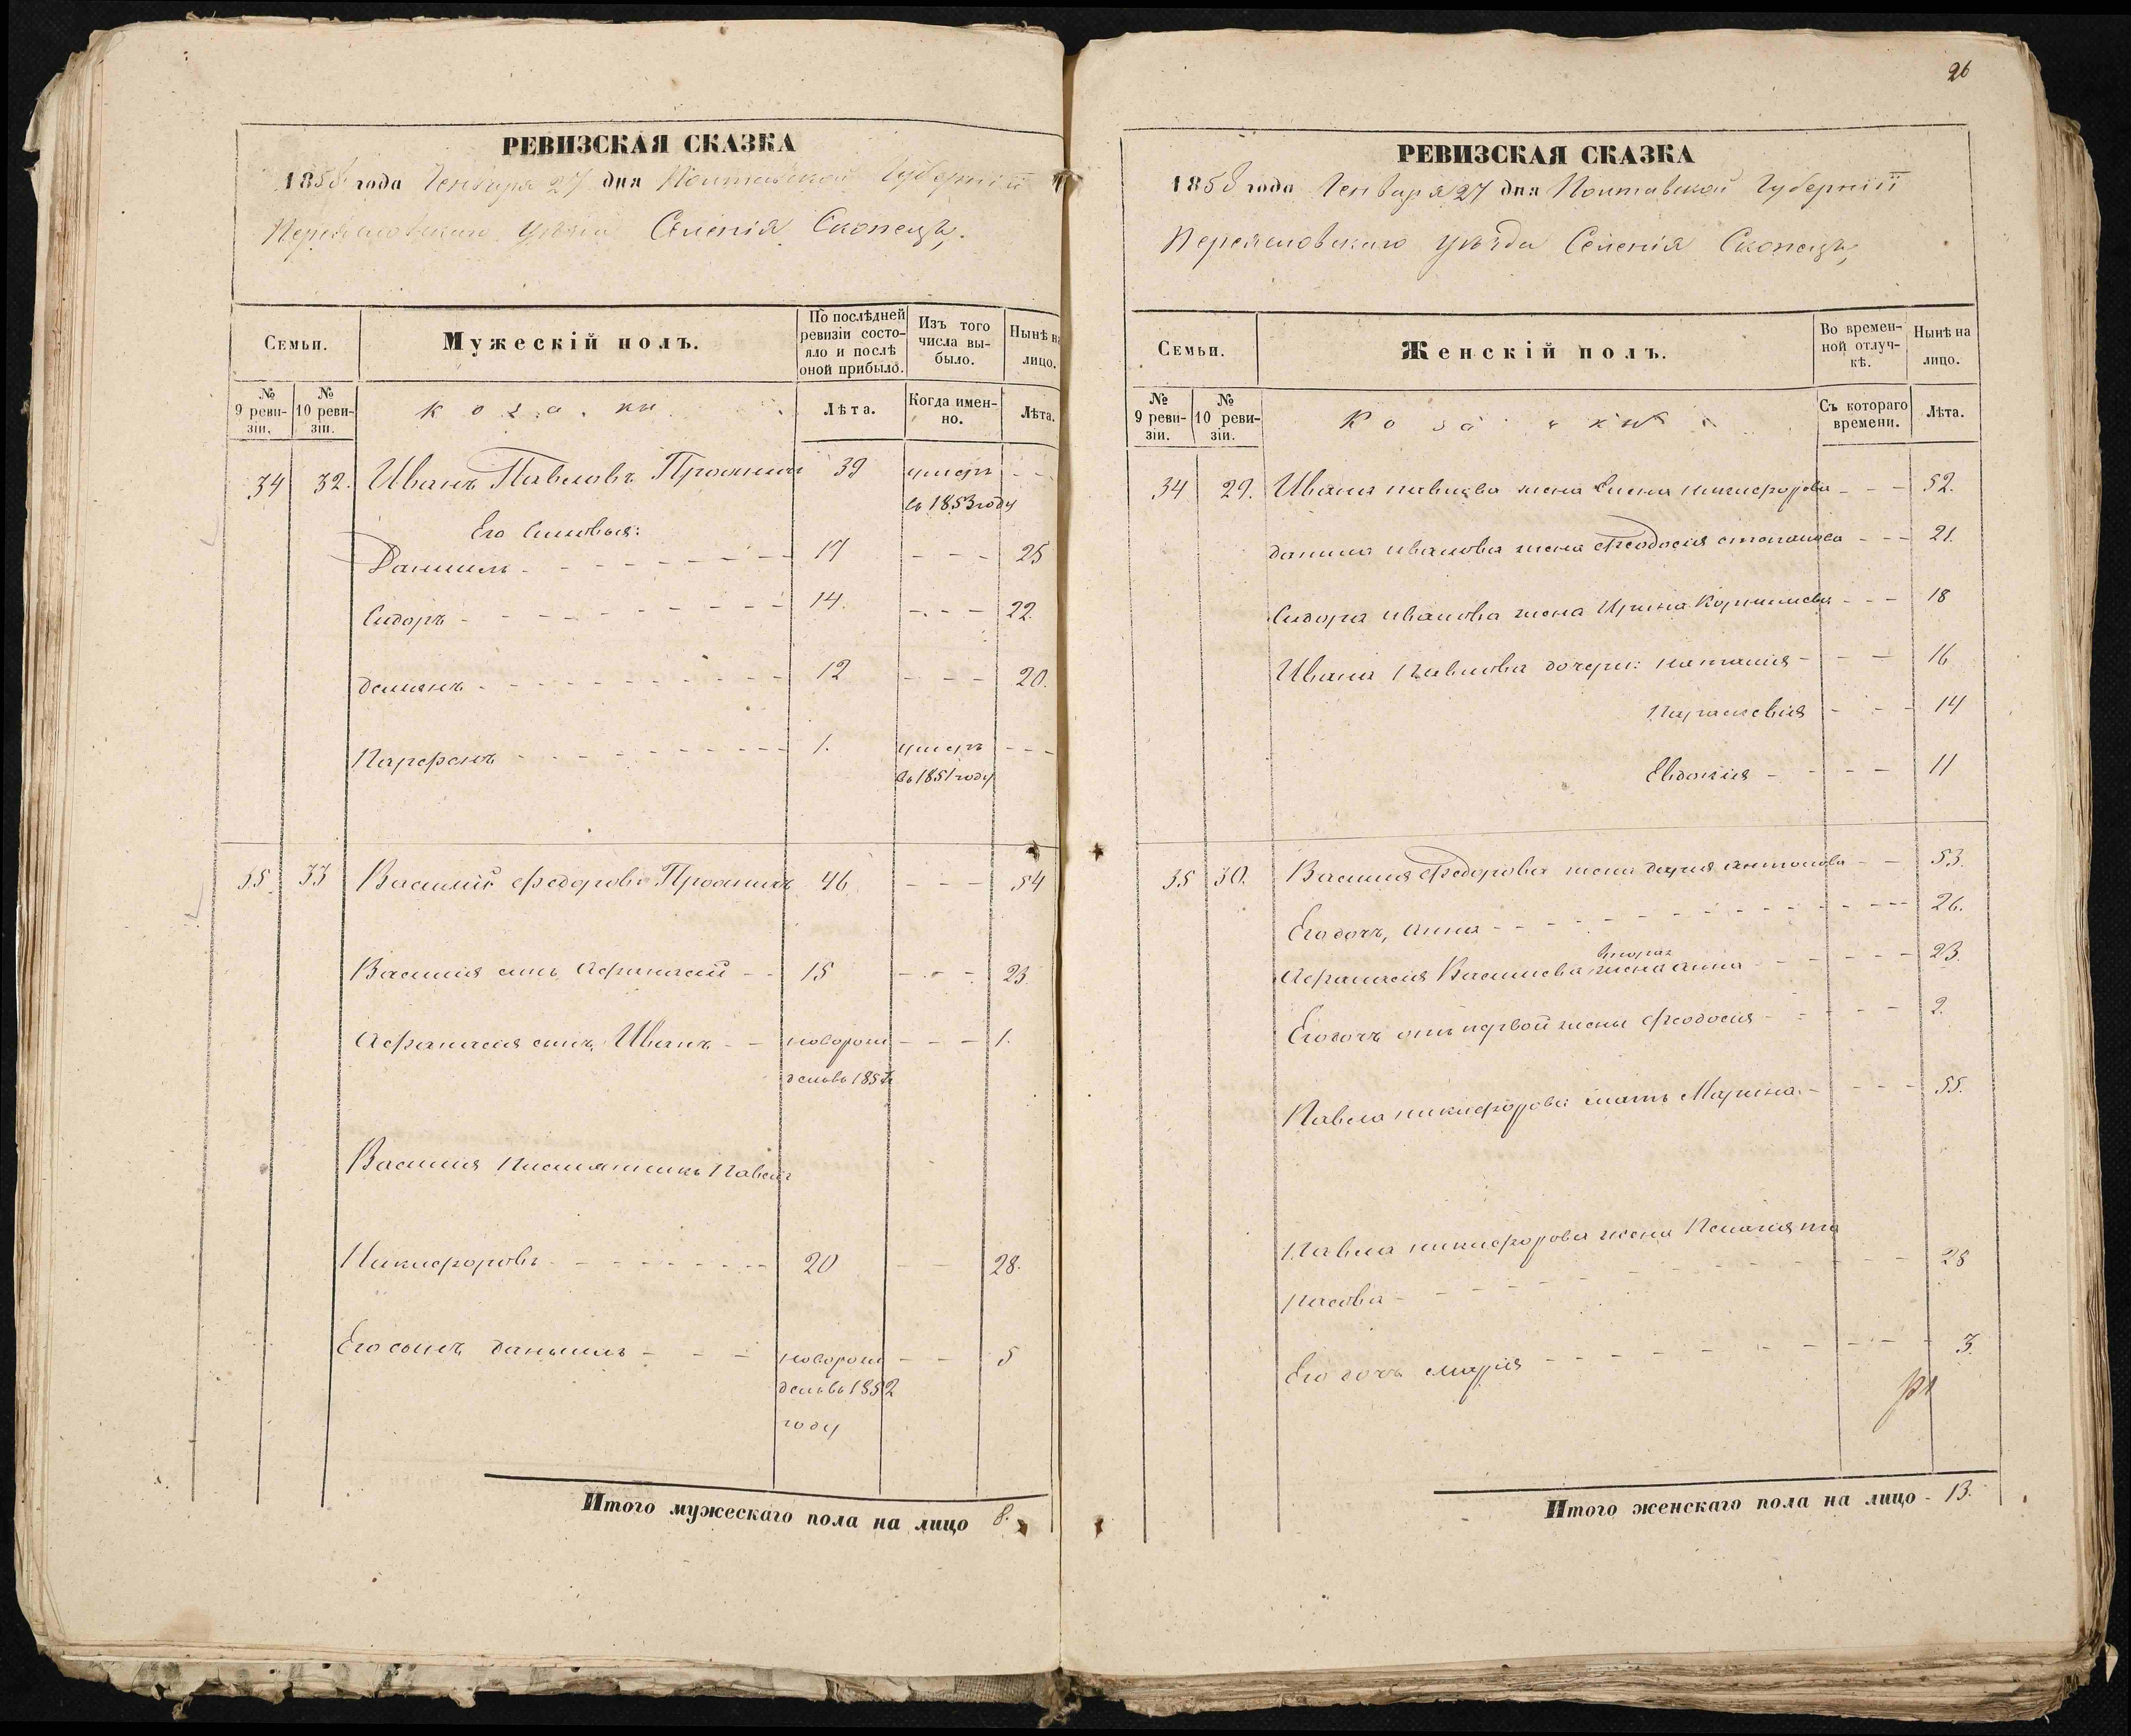 РЕВИЗСКАЯ СКАЗКА
1858 года Генваря 27 дня Полтавской Губерніи
Переяславскаго уѣзда Селенія Скопецъ,
Семьи.
Мужескій полъ.
По послѣдней ревизіи состояло и послѣ оной прибыло.
Изъ того числа выбыло.
Нынѣ на лицо.
№ 9 ревизіи.
№ 10 ревизіи.
козаки
Лѣта.
Когда именно.
Лѣта.
34 32. Иванъ Павловъ 39 умеръ - -
въ 1853 году
Его сыновья:
Даниилъ - - - 17 - - - 25
Сидоръ - - - 14. - - - 22.
Демянъ - - - 12 - - - 20.
Парфенъ - - - 1. умеръ - - -
въ 1851 году
35. 33 Василій Федоровъ 46. - - - 54
Василія сынъ Афанасій - - 15 - - - 23.
Афанасія сынъ, Иванъ - - новорож - - - 1.
денъ въ 1857
Василія племянникъ Павелъ
Никифоровъ - - - 20 - - 28.
Его сынъ Даніилъ - - - новорож - - 5
денъ въ 1852
году
Итого мужескаго пола на лицо 8.
26
РЕВИЗСКАЯ СКАЗКА
1858 года Генваря 27 дня Полтавской Губерніи
Переясловскаго уѣзда Селенія Скопецъ,
Семьи.
Женскій полъ.
Во временной отлучкѣ.
Нынѣ на лицо.
№ 9 ревизіи.
№ 10 ревизіи.
Съ котораго времени.
Лѣта.
34 29. Ивана Павлова жена Елена Никифорова - - - 52.
Данила Иванова жена Феодосія Степанова - - - 21.
Сидора Иванова жена Ирина Корнилиева - - - 18
Ивана Павлова дочери: Наталія - - - 16
Параскевія - - - 14
Евдокія - - - - 11
35 30. Василія Федорова жена Дарія Антонова - - 53.
Его дочь, Анна - - - 26.
вторая
Афанасія Васильева жена Анна - - - 23.
Его дочь отъ первой жены Феодосія - - - 2.
Павла Никифорова мать Марина - - - - 55.
Павла Никифорова жена Пелагія та
расова - - - 28
Его дочь Марія - - - 3.
Итого женскаго пола на лицо - 13.